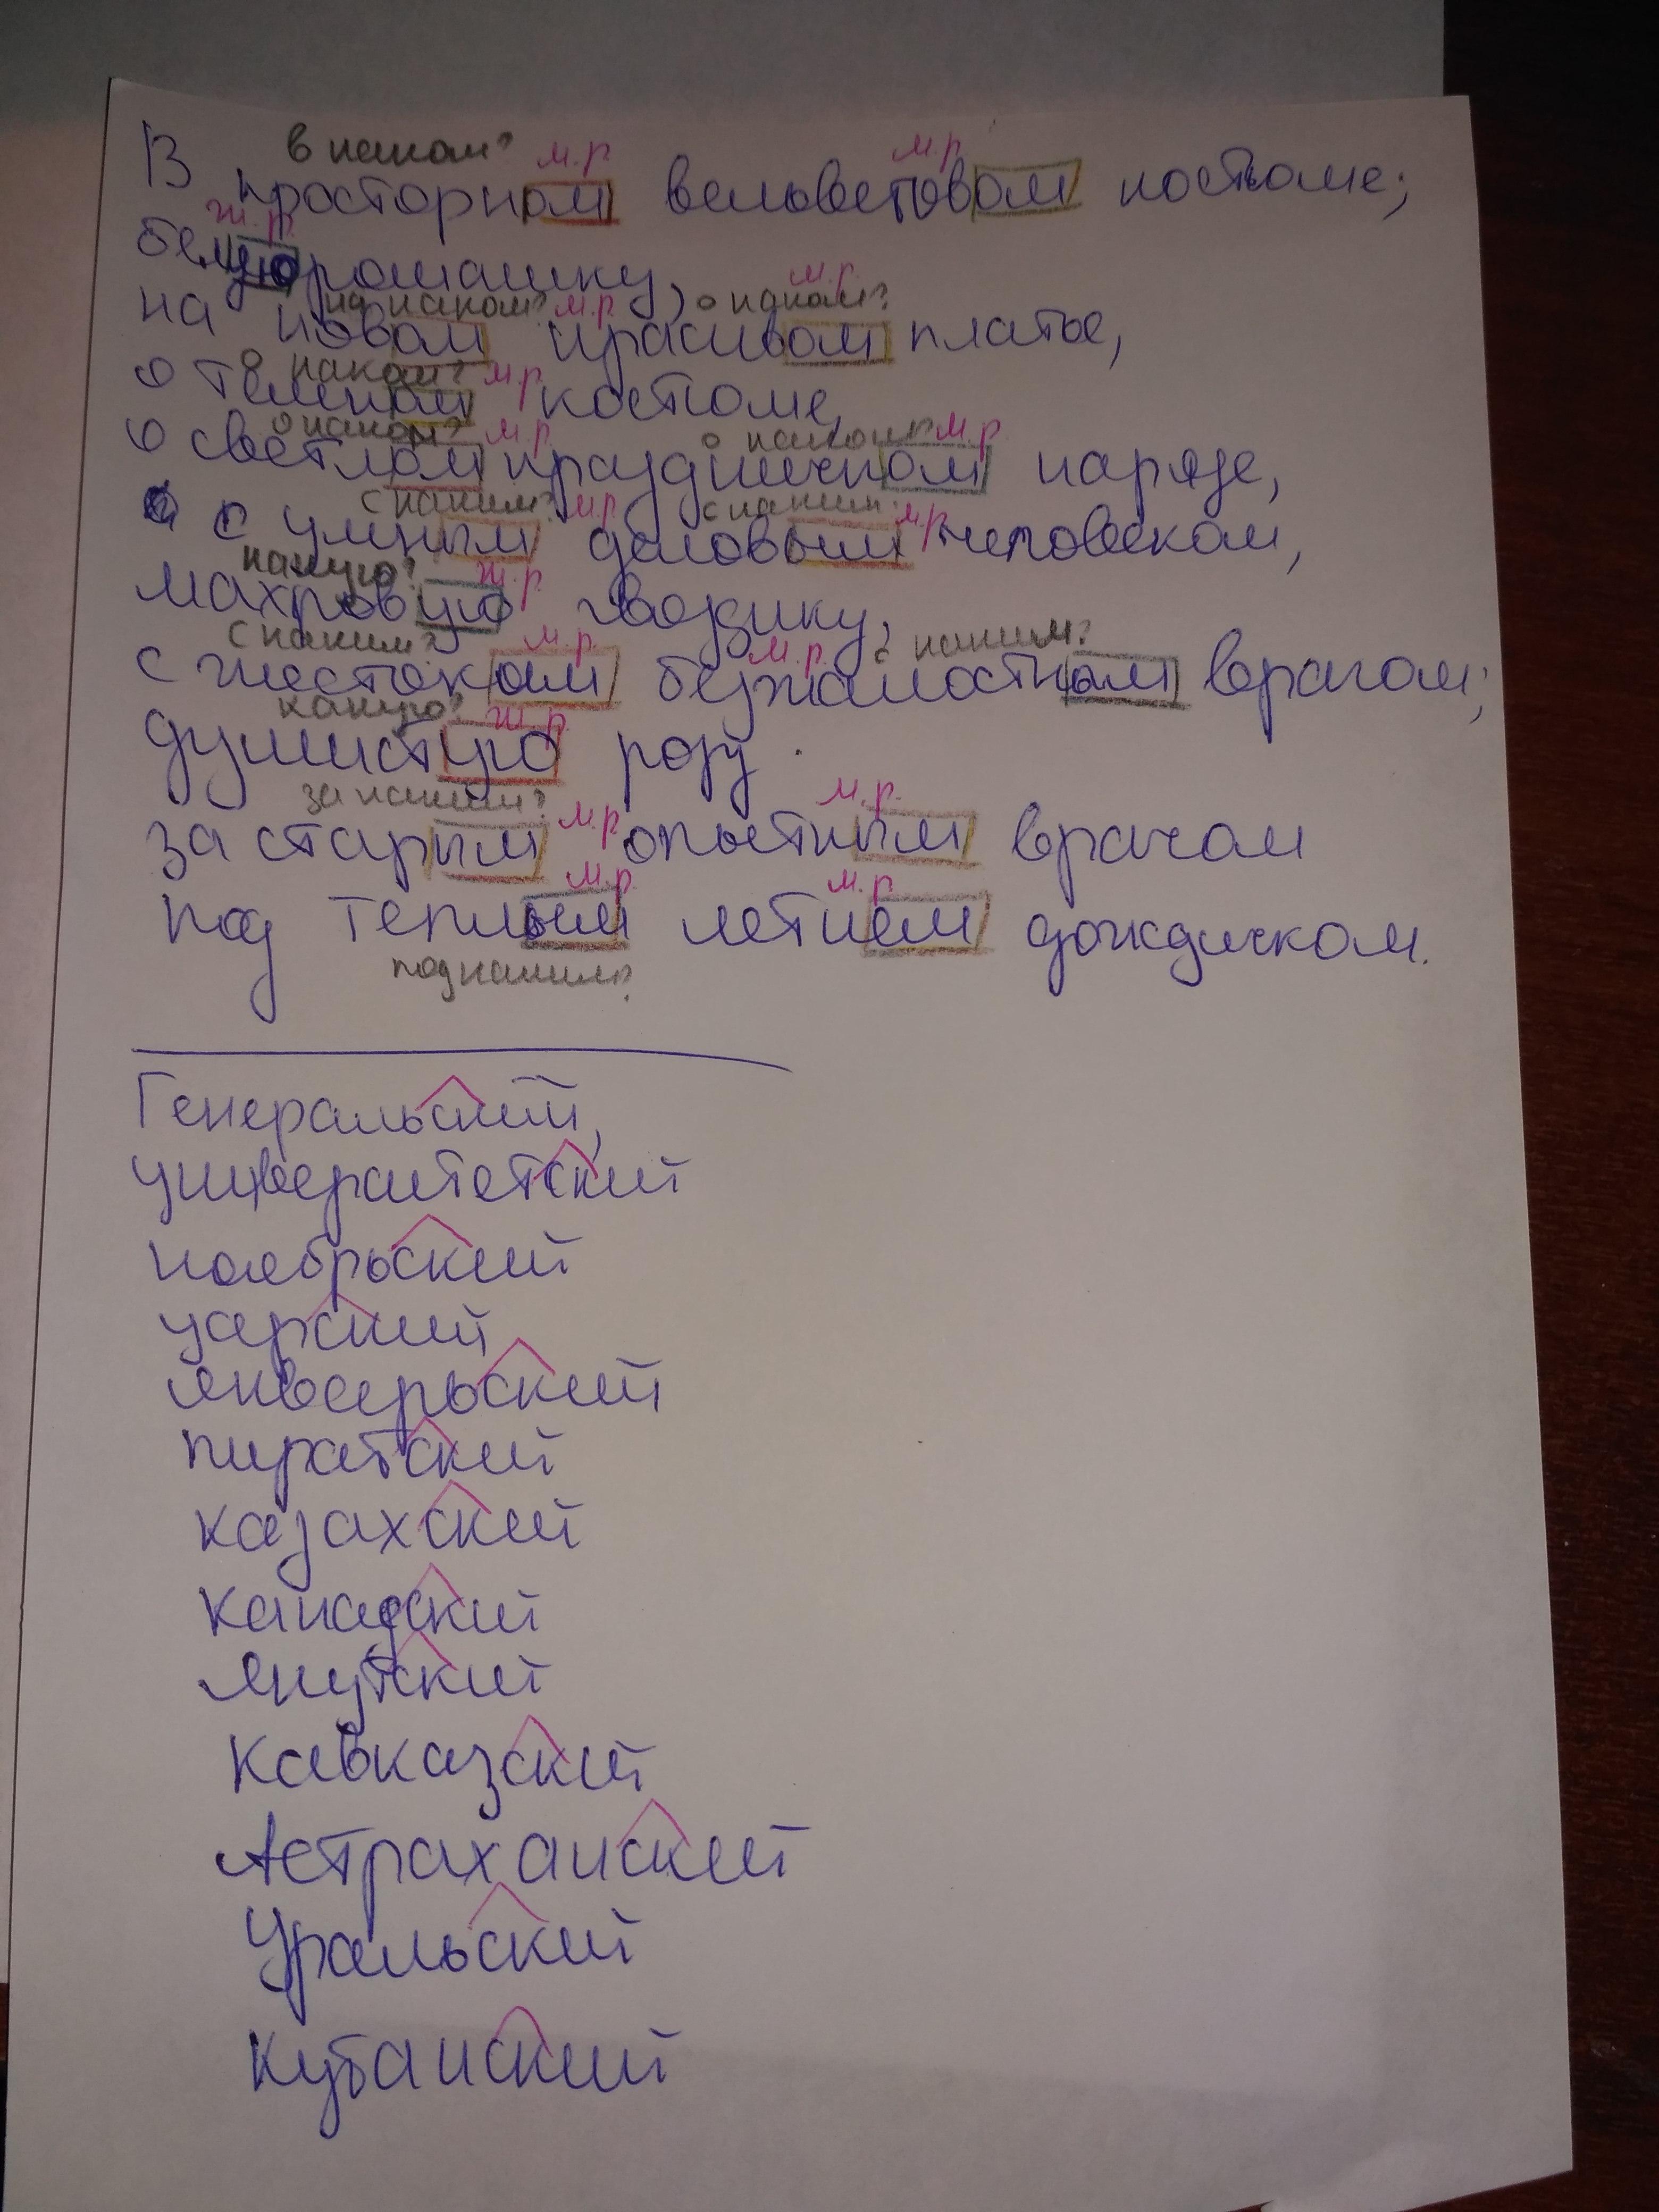 в каком? м.р. м.р.
В просторном вельветовом костюме;
ж.р.
белую ромашку,
на каком? м.р. м.р.
на новом красивом платье,
о каком? м.р.
о темном костюме,
о каком? м.р. о каком? м.р.
о светлом праздничном наряде,
с каким? м.р. с каким? м.р.
с умным деловым человеком,
какую? ж.р.
махровую гвоздику,
с каким? м.р. м.р. с каким?
с жестоким безжалостным врагом;
какую? ж.р.
душистую розу.
за каким? м.р. м.р.
за старым опытным врачом
м.р. м.р.
под теплым летнем дождичком.
под каким?
Генеральский,
университетский
ноябрьский
царский
январьский
пиратский
казахский
канадский
якутский
Кавказский
Астраханский
Уральский